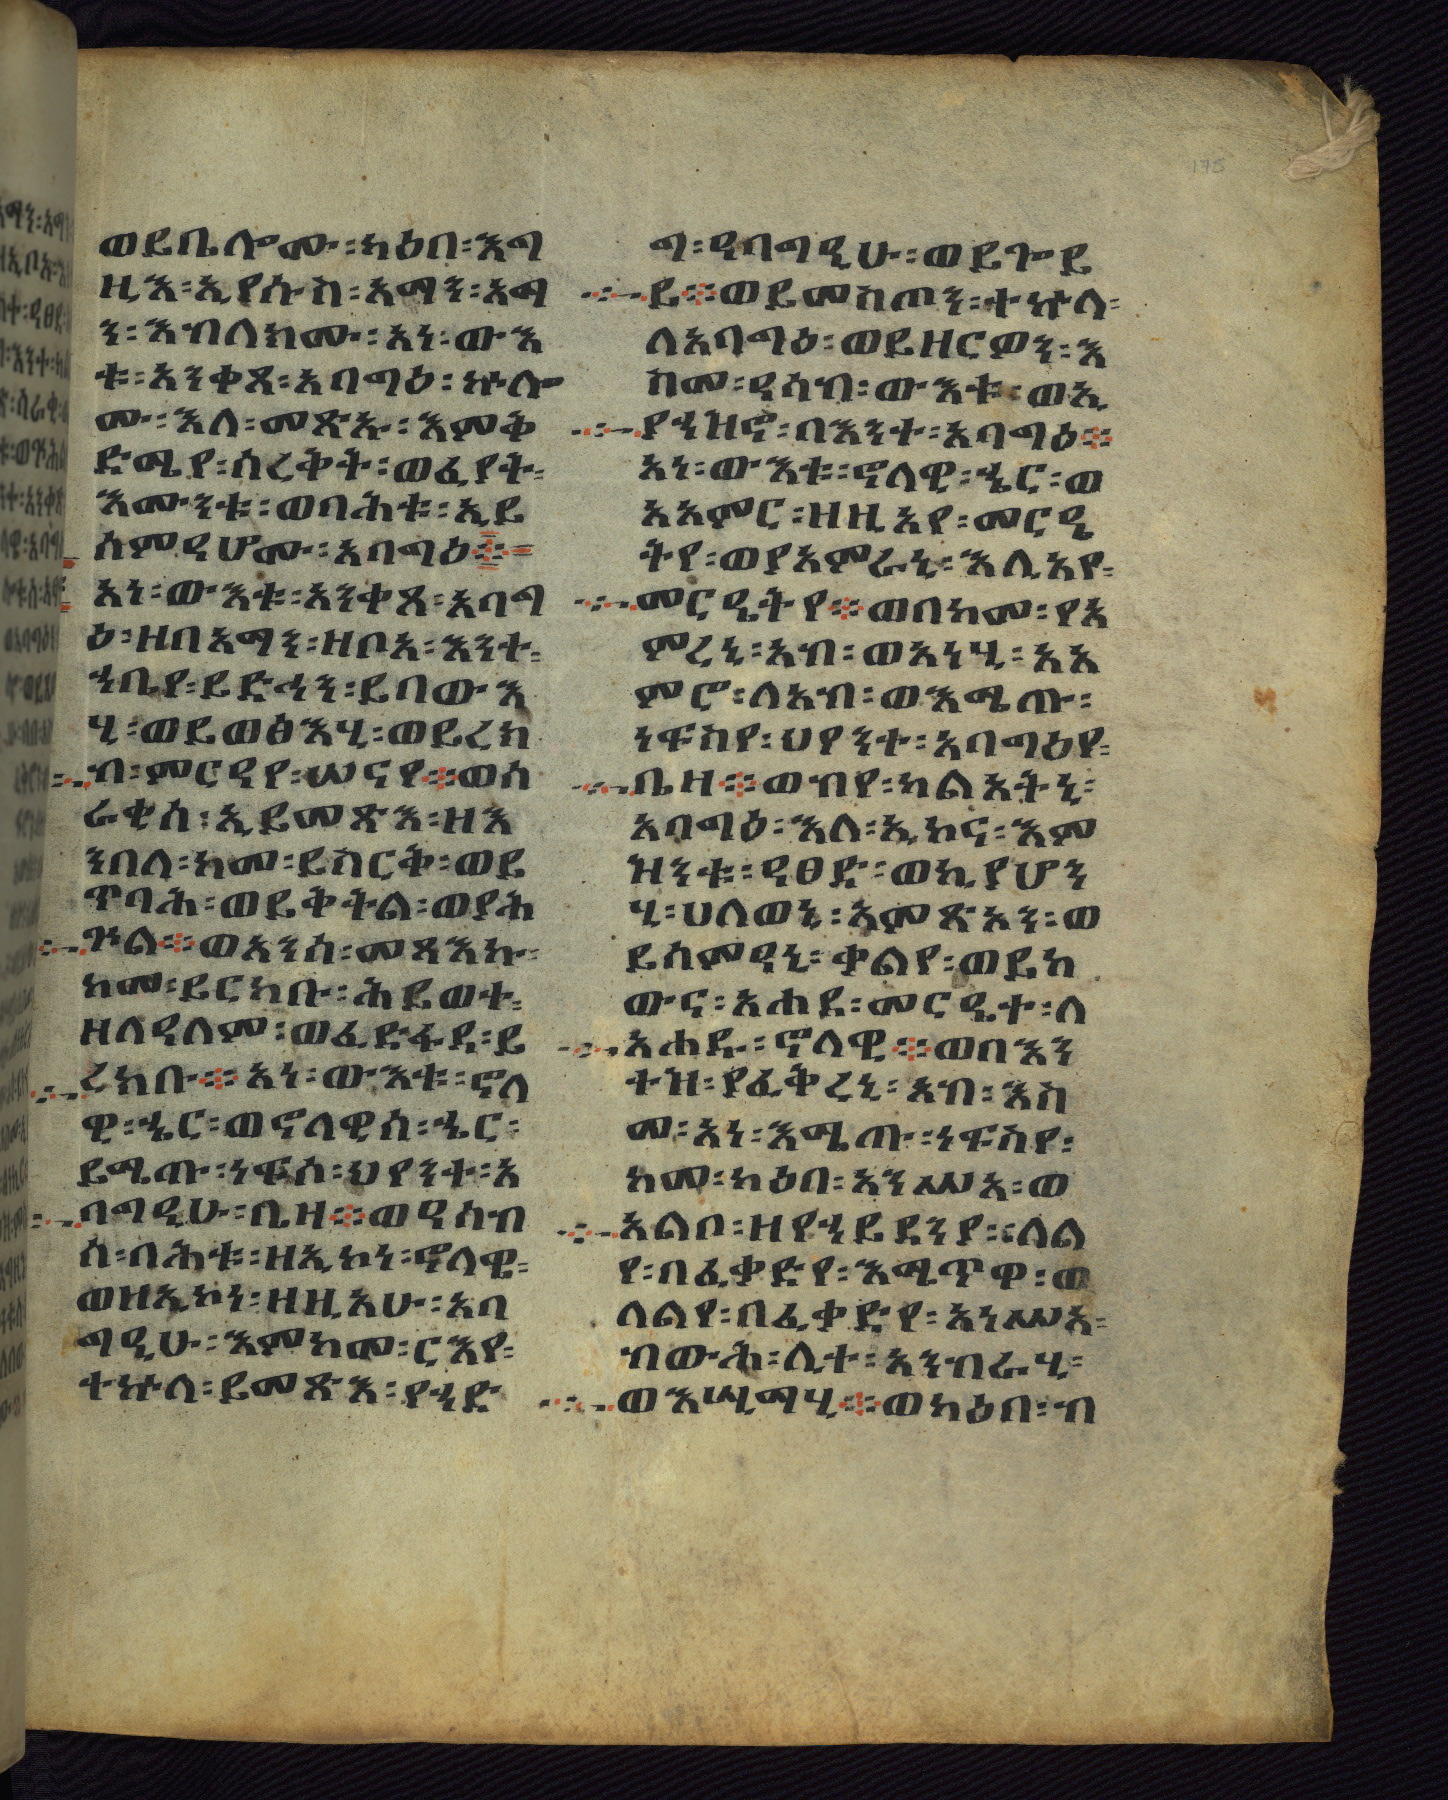 175
ወይቤሎሙ፡ካዕበ፡እግ
ዚእ፡ኢየሱስ፡አማን፡አማ
ን፡እብለክሙ፡አነ፡ውእ
ቱ፡አንቀጸ፡አባግዕ፡ኵሎ
ሙ፡እለ፡መጽኡ፡እምቅ
ድሜየ፡ሰረቅት፡ወፈያት፡
እሙንቱ፡ወባሕቱ፡ኢይ
ሰምዓሆሙ፡አባግዕ፨
አነ፡ውእቱ፡አንቀጸ፡አባግ
ዕ፡ዘበአማን፡ዘቦአ፡እንተ፡
ኀቤየ፡ይድኅን፡ይበውእ
ሂ፡ወይወፅእሂ፡ወይረክ
ብ፡ምርዓየ፡ሠናየ፨ወሰ
ራቂስ፡ኢይመጽእ፡ዘእ
ንበለ፡ከመ፡ይስርቅ፡ወይ
ጥባሕ፡ወይቅትል፡ወያሕ
ጕል፨ወአንሰ፡መጻእኩ፡
ከመ፡ይርከቡ፡ሕይወተ፡
ዘለዓለም፡ወፈድፋደ፡ይ
ረክቡ፨አነ፡ውእቱ፡ኖላ
ዊ፡ኄር፡ወኖላዊሰ፡ኄር፡
ይሜጡ፡ነፍሶ፡ህየንተ፡አ
ባግዒሁ፡ቤዛ፨ወዓሳብ
ሰ፡ባሕቱ፡ዘኢኮነ፡ኖላዊ፡
ወዘኢኮነ፡ዘዚአሁ፡አባ
ግዒሁ፡እምከመ፡ርእየ፡
ተኵላ፡ይመጽእ፡የኀድ
ግ፡ዓባግዒሁ፡ወይጐይ
ይ፨ወይመስጦን፡ተኵላ፡
ለአባግዕ፡ወይዘርዎን፡እ
ስመ፡ዓሳብ፡ውእቱ፡ወኢ
ያኀዝኖ፡በእንተ፡አባግዕ፨
አነ፡ውእቱ፡ኖላዊ፡ኄር፡ወ
አአምር፡ዘዚአየ፡መርዔ
ትየ፡ወያአምራኒ፡እሊአየ፡
መርዔትየ፨ወበከመ፡የአ
ምረኒ፡አብ፡ወአነሂ፡አአ
ምሮ፡ለአብ፡ወእሜጡ፡
ነፍስየ፡ህየንተ፡አባግዕየ፡
ቤዛ፨ወብየ፡ካልአትኒ፡
አባግዕ፡እለ፡ኢኮና፡እም
ዝንቱ፡ዓፀድ፡ወኪያሆን
ሂ፡ሀለወኒ፡አምጽአን፡ወ
ይሰምዓኒ፡ቃልየ፡ወይከ
ውና፡አሐደ፡መርዔተ፡ለ
አሐዱ፡ኖላዊ፨ወበእን
ተዝ፡ያፈቅረኒ፡አብ፡እስ
መ፡አነ፡እሜጡ፡ነፍስየ፡
ከመ፡ካዕበ፡አንሥአ፡ወ
አልቦ፡ዘየኀይደንያ፡ለል
የ፡በፈቃድየ፡እሜጥዋ፡ወ
ለልየ፡በፈቃድየ፡አነሥአ፡
ብውሕ፡ሊተ፡አንብራሂ፡
ወእሢማሂ፨ወካዕበ፡ብ